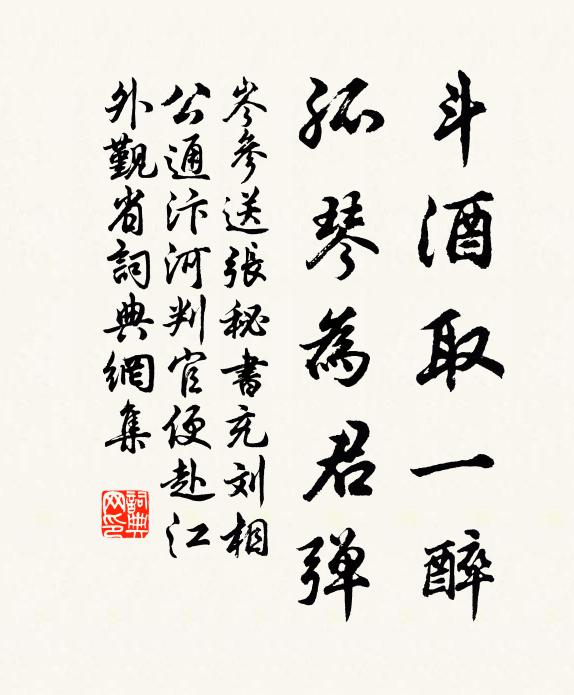 斗酒取一醉
孤琴為君彈
岑參送張秘書充刘相
公通汴河判官便赴江
外觀省詞典網集
詞典
网印